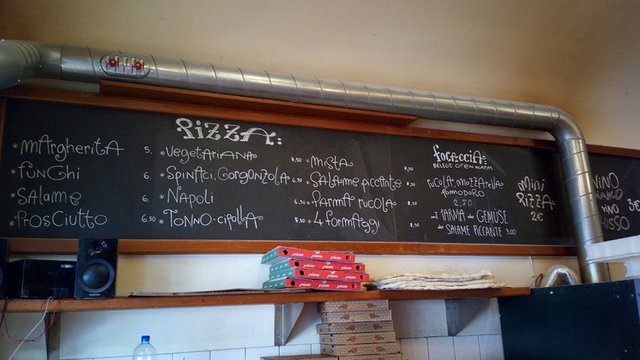 PIZZA:
MARGHERITA 5.
FUNGHI 6.
SALAME 6.
PROSCIUTTO 6.50
VEGETARIANA
SPINACI, GORGONZOLA
NAPOLI
TONNO-CIPOLLA
MISTA
SALAME PICCANTE
PARMA RUCOLA
4 FORMAGGI
FOCACCIA:
BELEGT OFENWARM
RUCOLA, MOZZARELLA
POMODORO
PARMA oder GEMÜSE
oder SALAME PICCANTE 3.00
MINI
PIZZA
2€
VINO
VINO
ROSSO
pizza